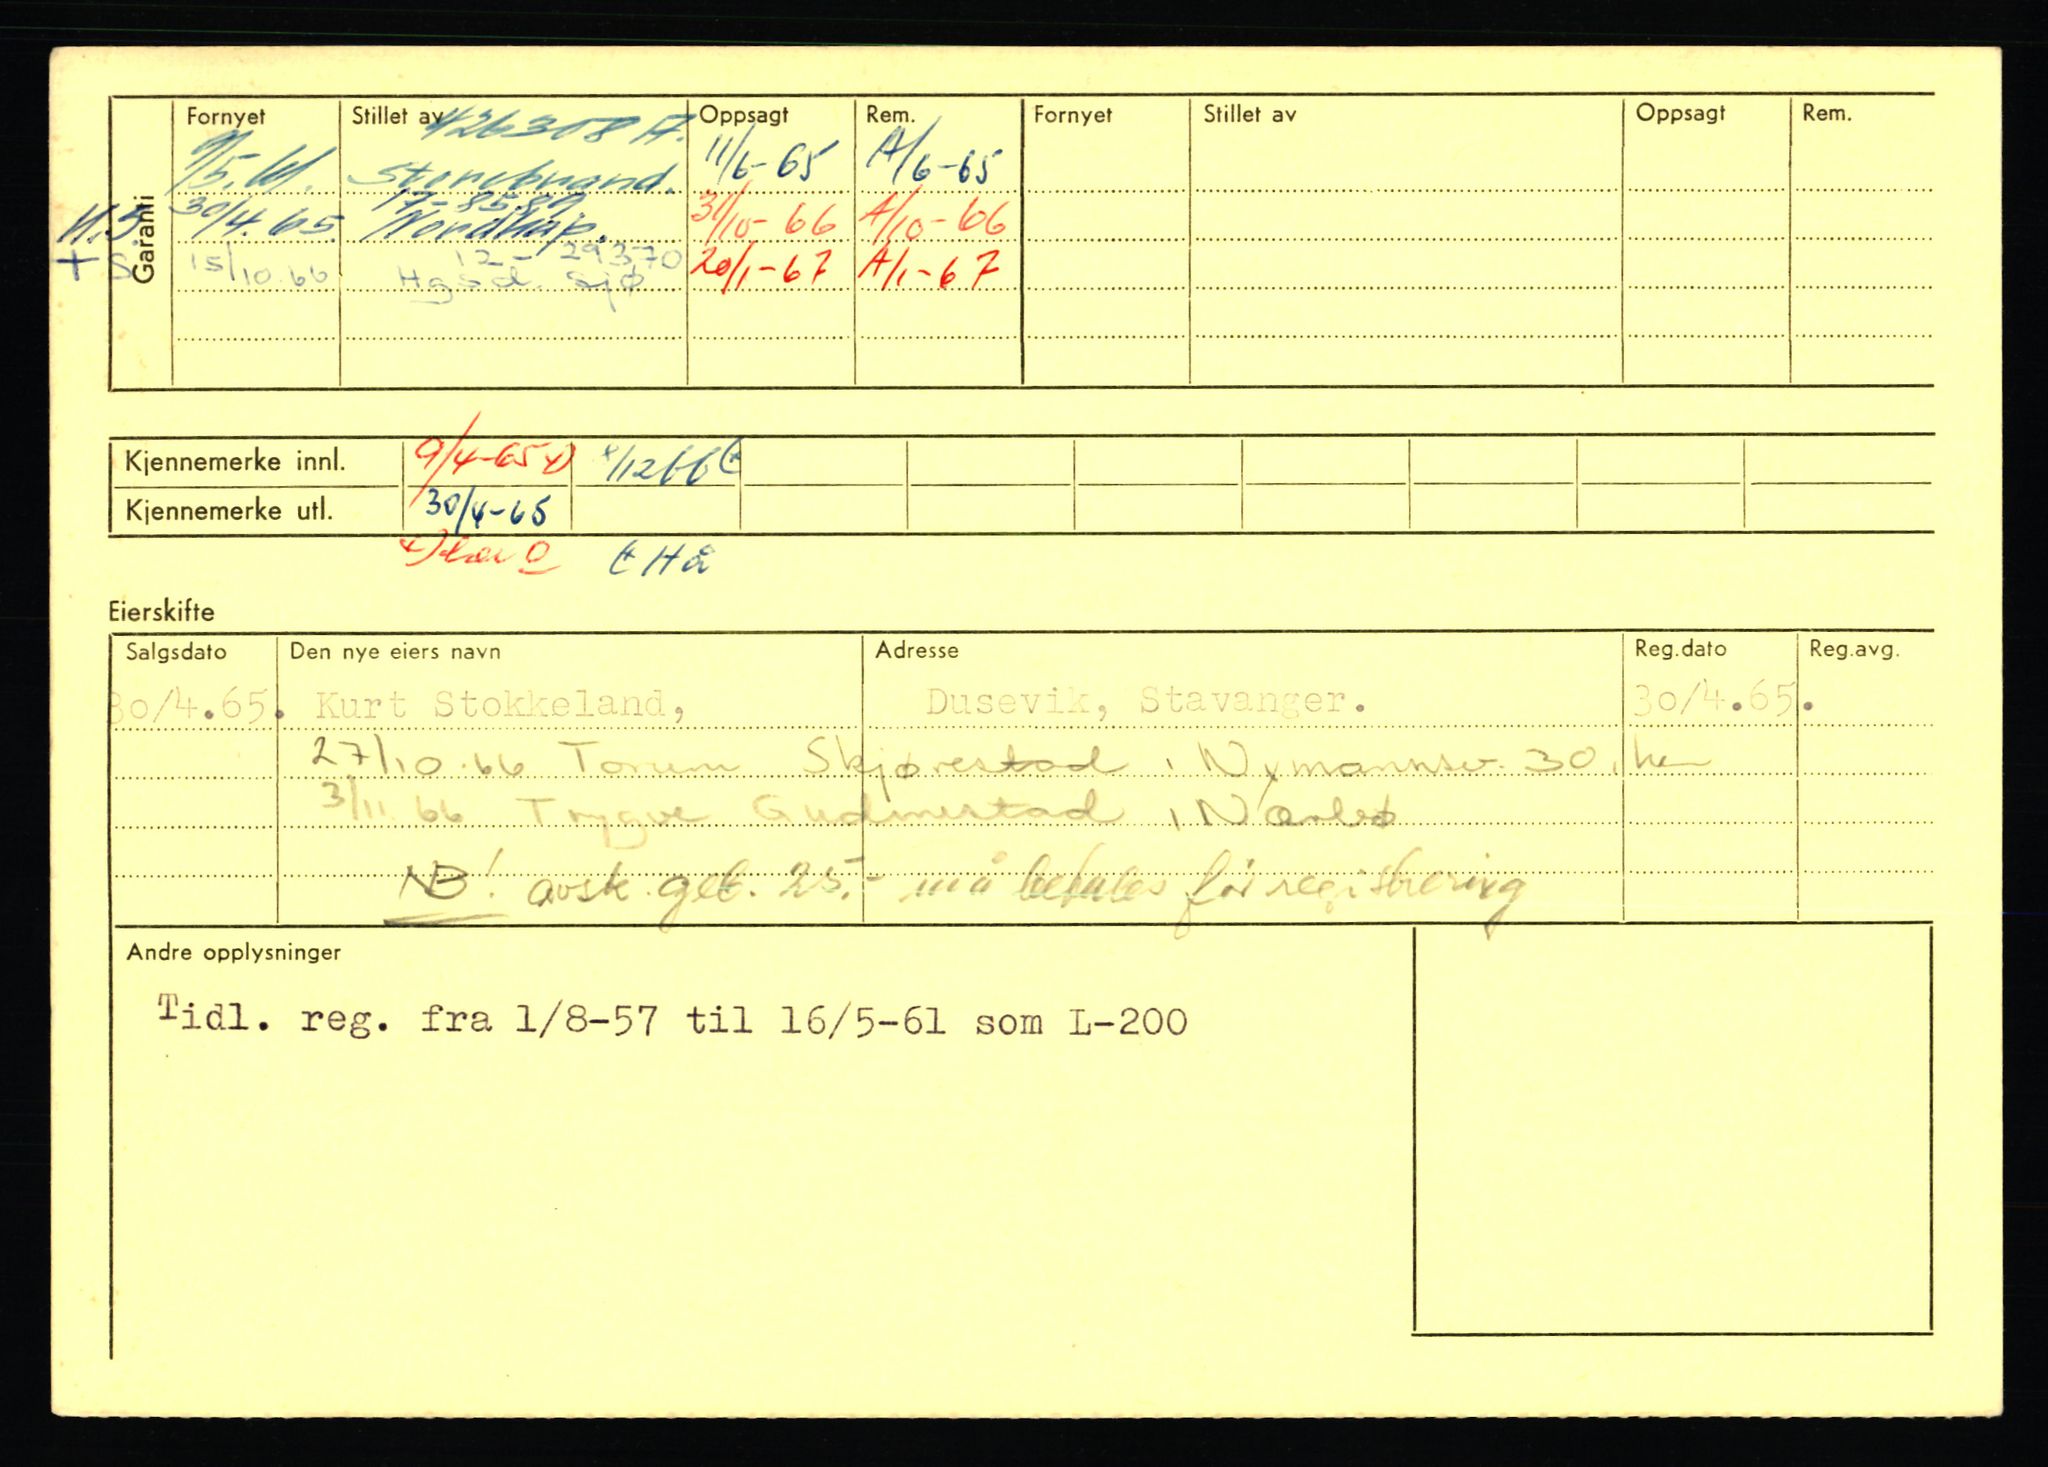 Fornyet Stillet av Oppsagt Rem. Fornyet Stillet av Oppsagt Rem.
Garanti
426308 A.
9/5.61. Storebrand. 11/6-65 A/6-65
17-8587
N.S. 30/4.65 Nordkap. 31/10-66 A/10-66
12-29370
+ S 15/10.66 Hgsd. Sjø 20/1-67 A/1-67
Kjennemerke innl. 9/4-65 x) /1266 (+
Kjennemerke utl. 30/4-65
x) O (+ Hå
Eierskifte
Salgsdato Den nye eiers navn Adresse Reg.dato Reg.avg.
30/4.65. Kurt Stokkeland, Dusevik, Stavanger. 30/4.65.
27/10.66 Torunn Skjørestad, Nymannsv. 30, her
3/11.66 Trygve Gudmestad, Nærbø
NB! avsk. geb. 25.- må betales før registrering
Andre opplysninger
Tidl. reg. fra 1/8-57 til 16/5-61 som L-200